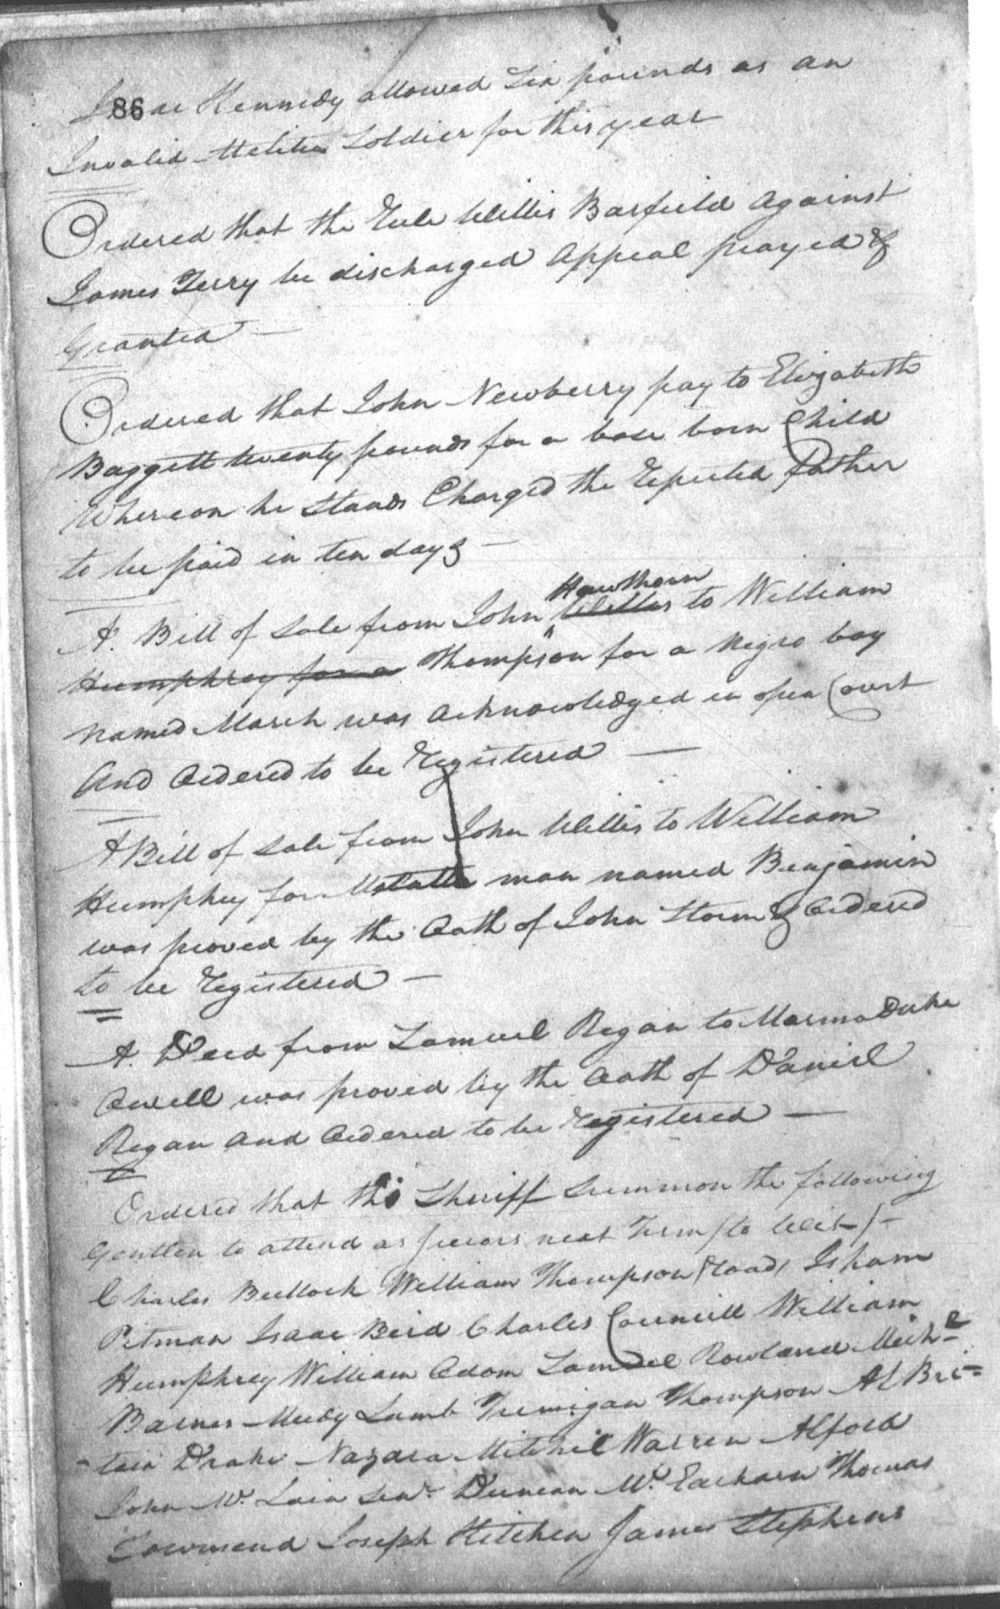 86
Isaac Kennedy allowed Six pounds as an
Invalid Melitia Soldier for this year
Ordered that the Rule Willis Barfield Against
James Terry be discharged Appeal prayed &
Granted —
Ordered that John Newberry pay to Elizabeth
Baggett twenty pounds for a base born Child
Whereon he Stands Charged the Reputed Father
to be paid in ten days —
Hawthorn
A. Bill of Sale from John Willis to William
Humphrey for a Thompson for a Negro boy
named March was Acknowledged in open Court
And Ordered to be Registered —
A Bill of Sale from John Willis to William
Humphrey for Molatto man named Benjamin
was proved by the Oath of John Storm & Ordered
to be Registered —
A. Deed from Samuel Regan to MarmaDuke
was proved by the Oath of Daniel
Regan And Ordered to be Registered —
Ordered that the Sheriff Summon the following
Gentlen to attend as Jurors next Term (to Wit)
Charles Bullock William Thompson Roads Isham
Pitman Isaac Beid Charles Councill William
Humphrey William Odom Samuel Rowland Mich
Barnes Meedy Lamb Trimigan Thompson Al Bri=
tain Drake Nazara Mitchel Warren Alford
John Mc Lain Senr Duncan Mc Eachern Thomas
Townsend Joseph Kitchen James Stephens